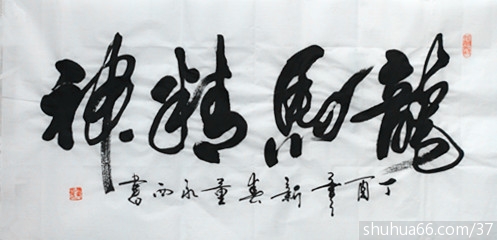 龍馬精神
丁酉年新春董永西書
shuhua66.com/37